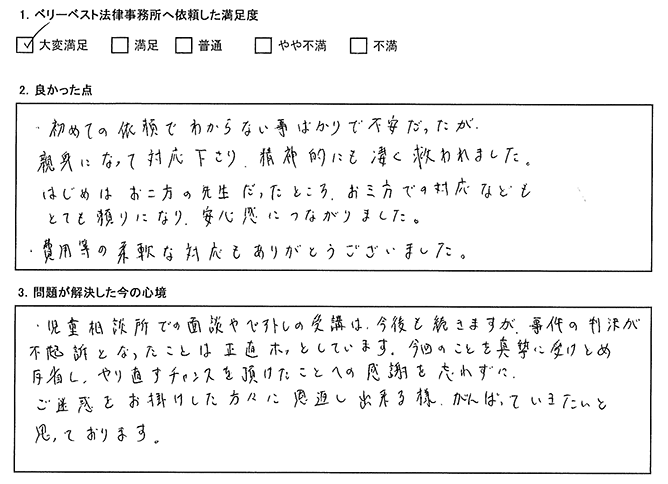 1. ベリーベスト法律事務所へ依頼した満足度
大変満足 満足 普通 やや不満 不満
2. 良かった点
・初めての依頼でわからない事ばかりで不安だったが、
親身になって対応下さり、精神的にも凄く救われました。
はじめはお二方の先生だったところ、お三方での対応なども
とても頼りになり、安心感につながりました。
・費用等の柔軟な対応もありがとうございました。
3. 問題が解決した今の心境
・児童相談所での面談やペアトレの受講は、今後も続きますが、事件の判決が
不起訴となったことは正直ホッとしています。今回のことを真摯に受けとめ
反省し、やり直すチャンスを頂けたことへの感謝を忘れずに、
ご迷惑をお掛けした方々に恩返し出来る様、がんばっていきたいと
思っております。